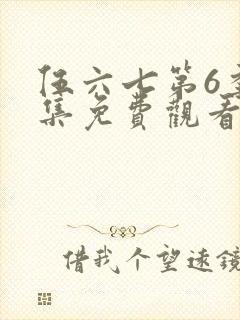 伍六七第6季
集免費觀看
借我个望遠鏡